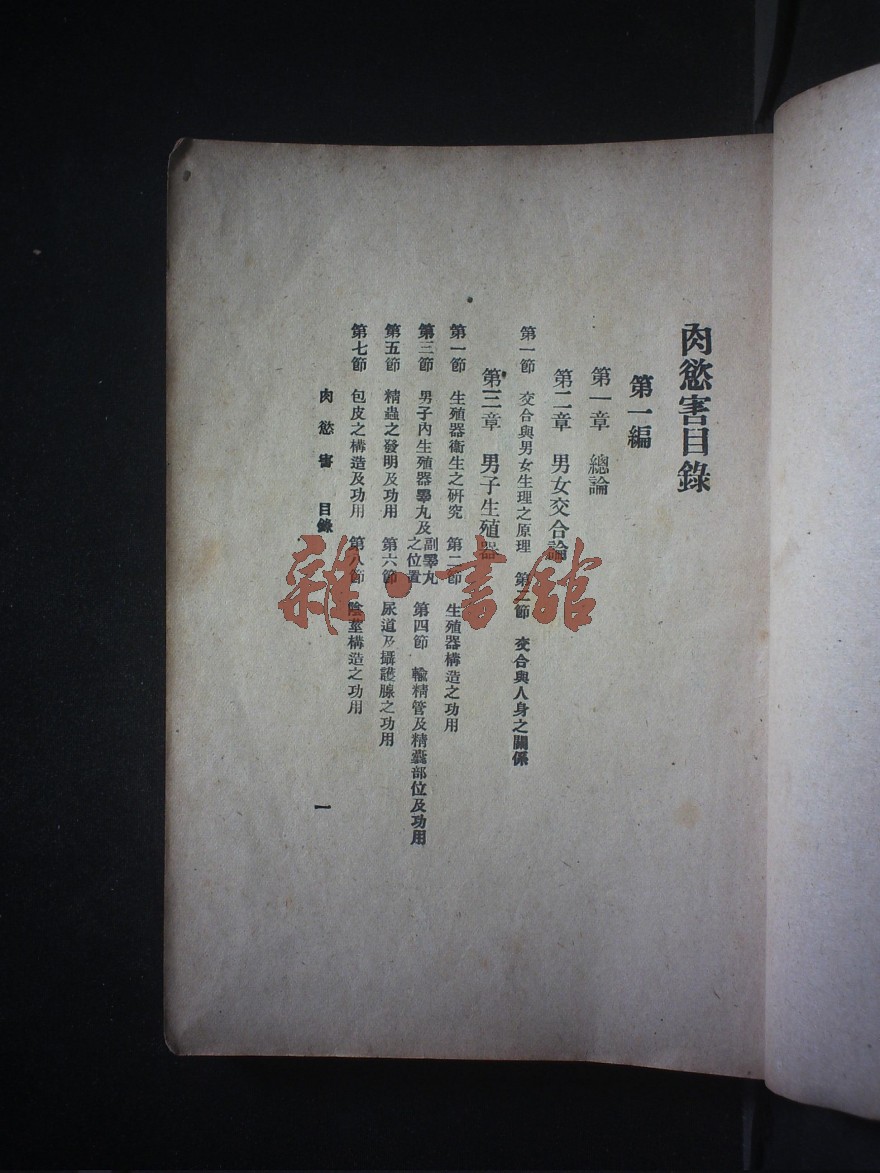 肉慾害目錄
第一編
第一章　總論
第二章　男女交合論
第一節　交合與男女生理之原理　第二節　交合與人身之關係
第三章　男子生殖器
第一節　生殖器衞生之研究　第二節　生殖器構造之功用
第三節　男子內生殖器睾丸及副睾丸之位置　第四節　輸精管及精囊部位及功用
第五節　精蟲之發明及功用　第六節　尿道及攝護腺之功用
第七節　包皮之構造及功用　第八節　陰莖構造之功用
肉慾害　目錄　一
雜·書館